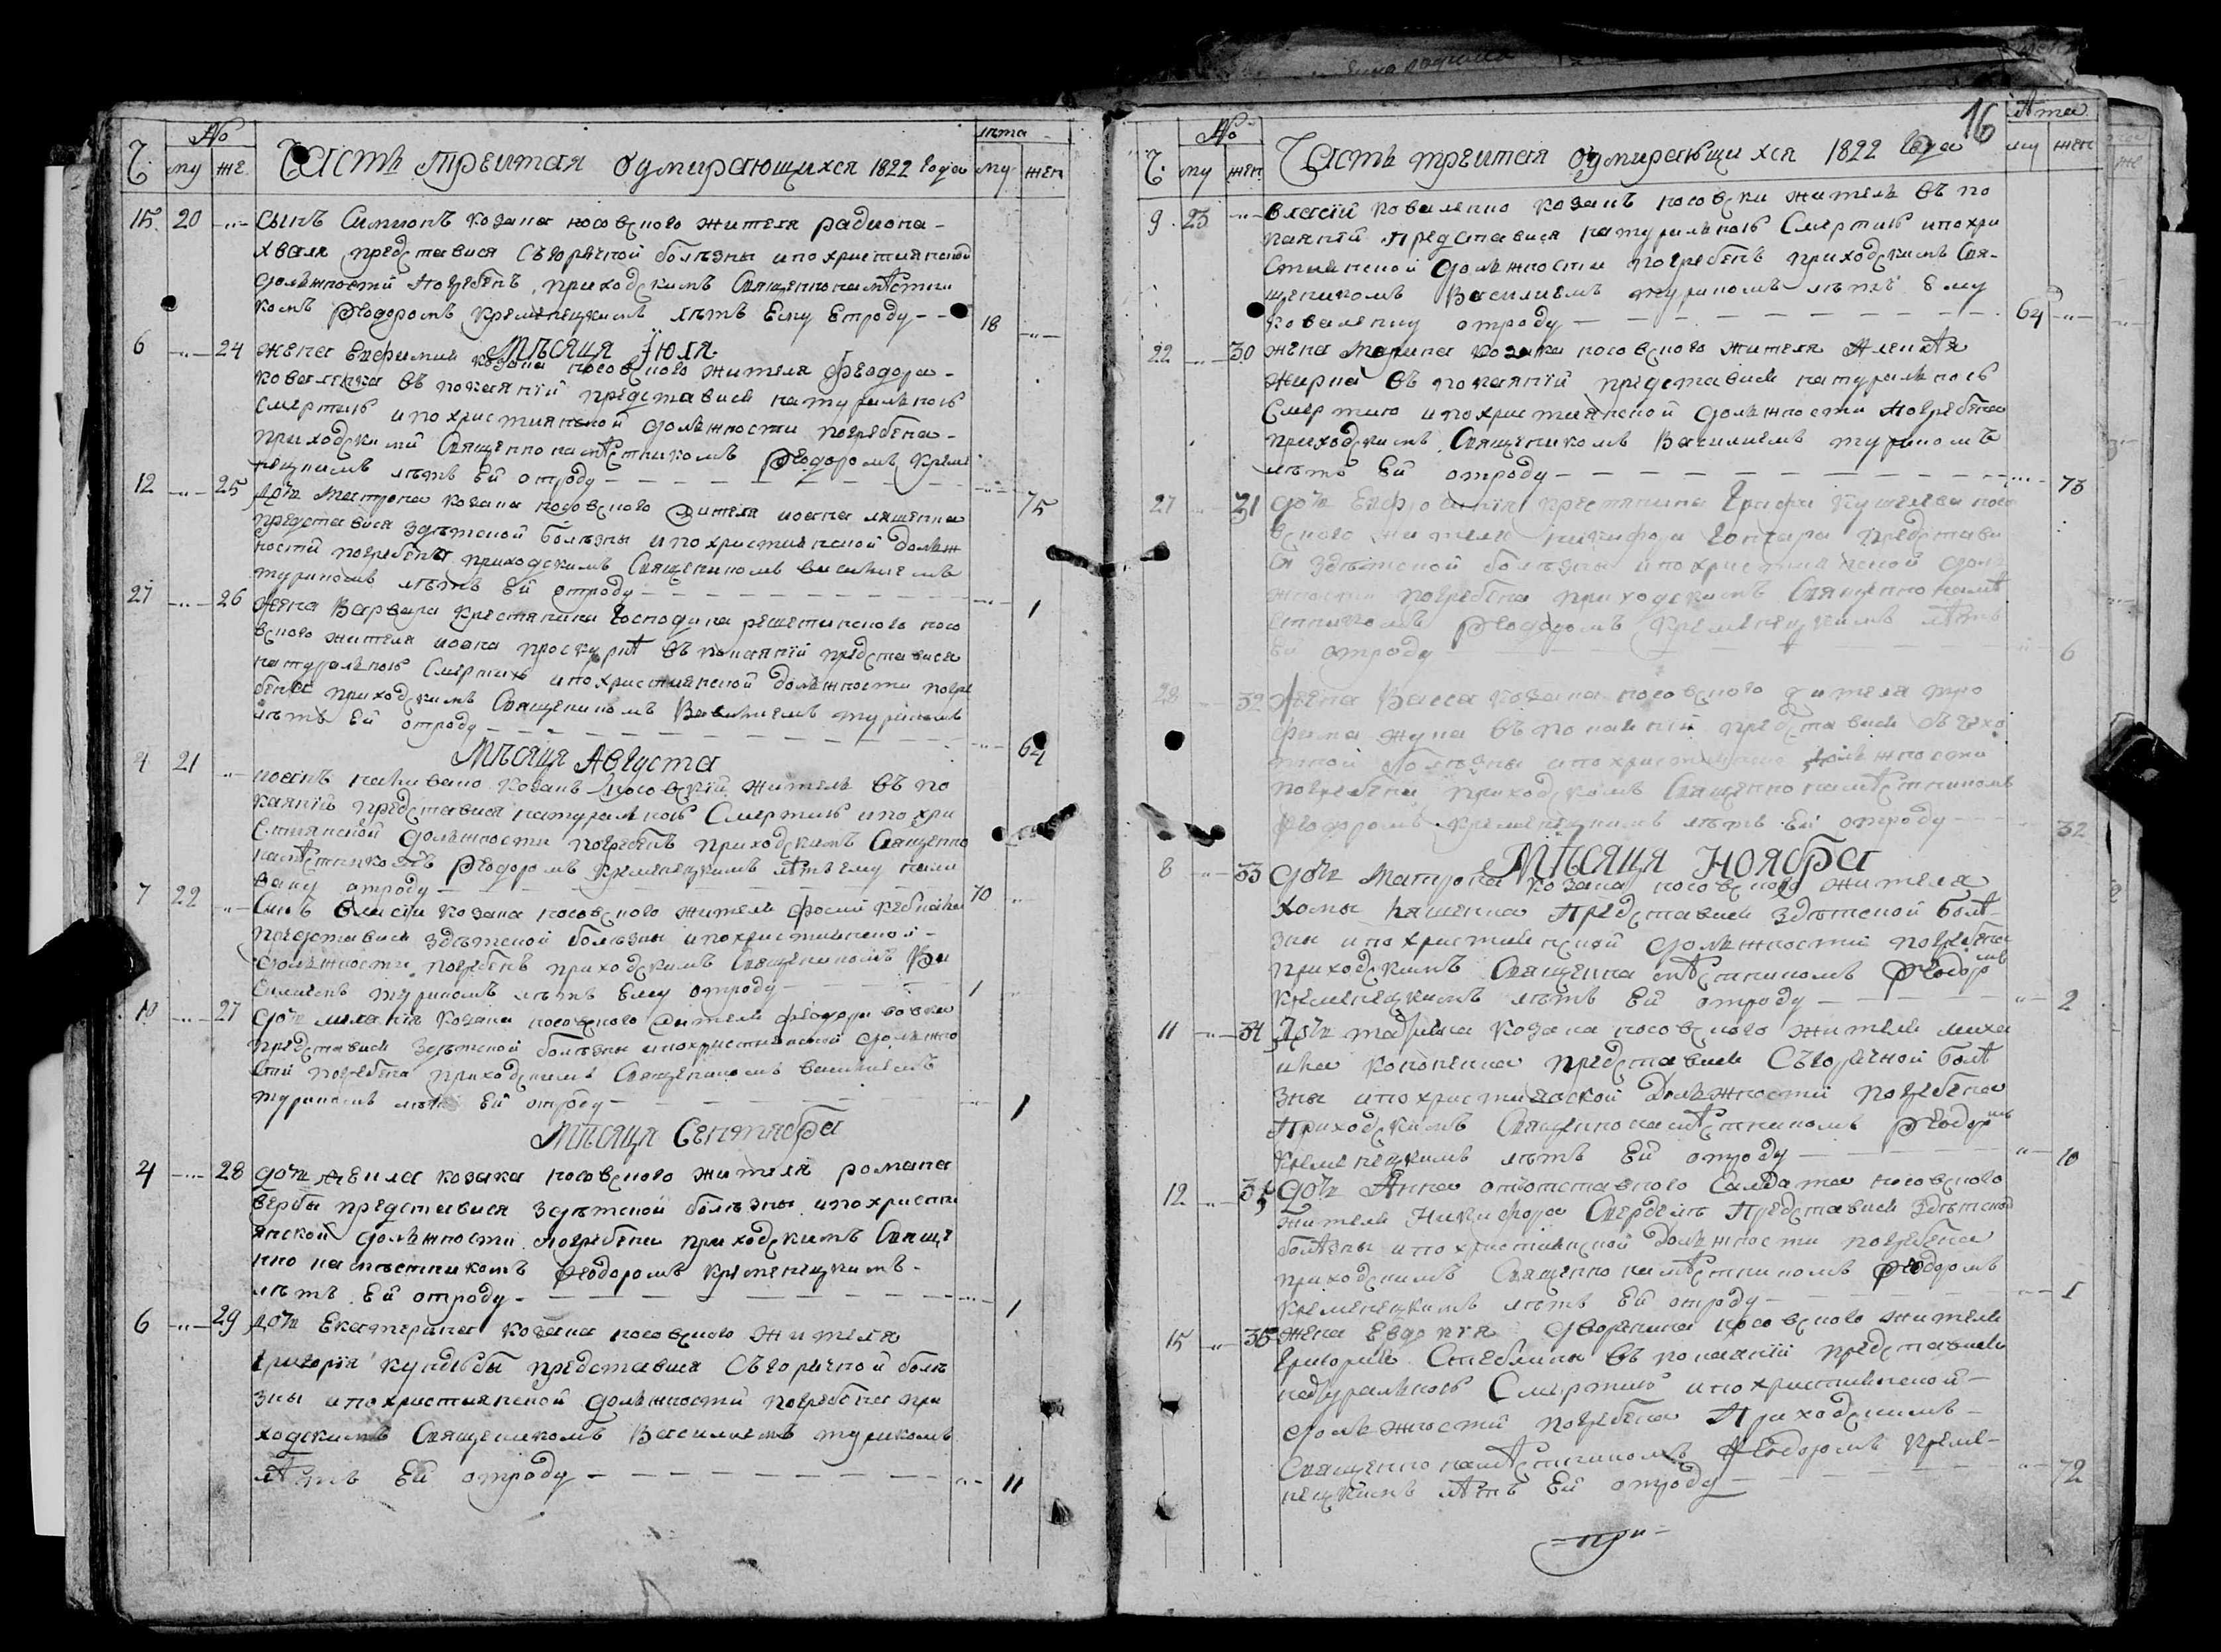 Ч. № му же Часть третая оумирающихся 1822 года лѣта му жен
15 20 „ сынъ Симионъ козака носовского жителя радиона
хваля представися Съгорячной болѣзны ипохристиянской
должностй погребенъ приходскимъ Священнонамѣстни
комъ Феодоромъ Кременецкимъ лѣтъ Ему Ѿроду 18 „
Мѣсяца Iюля
6 „ 24 жена Евфимия козака носовского жителя феодора
коваленка въ покаянiй представися натуральною
Смертию ипохристиянской должности погребена
приходскимъ Священнонамѣстникомъ Феодоромъ Креме
нецкимъ лѣтъ Ей отроду „ 75
12 „ 25 дочь Матрона козака носовского жителя иоана ляшенка
представися здѣтской болѣзны ипохристиянской долж
ностй погребена приходскимъ Священикомъ василиемъ
туриномъ лѣтъ Ей отроду „ 1
27 „ 26 жена Варвара Крестянина Господина решетинского носо
вского жителя иоана проскурнѣ въ покаянiй представися
натуральною Смертию ипохристиянской должности погре
бена приходскимъ Священикомъ Василиемъ туриномъ
лѣтъ Ей отроду „ 64
Мѣсяца Августа
4 21 „ иоанъ наливано козакъ носовскiй житель въ по
каянiй представися натуральною Смертию ипохри
стиянской должности погребенъ приходскимъ Священно
намѣстникомъ Феодоромъ Кременецкимъ лѣтъ ему нали
вану отроду 70 „
7 22 „ Синъ власiи козака носовского жителя
представися здѣтской болѣзны ипохристиянской
должности погребенъ приходскимъ Священикомъ Ва
силиемъ туриномъ лѣтъ Ему отроду 1 „
10 „ 27 дочь мелания козака носовского жителя феодора вовка
представися здѣтской болѣзны ипохристиянской должно
стй погребена приходскимъ Священикомъ василиемъ
туриномъ лѣтъ Ей отроду „ 1
Мѣсяца Сентября
4 „ 28 дочь козака носовского жителя романа
вербы представися здѣтской болѣзны ипохристи
янской должности погребена приходскимъ Свяще
нно намѣстникомъ Феодоромъ кременецкимъ
лѣтъ Ей отроду „ 1
6 „ 29 дочь Екатерина козака носовского жителя
григорiя кундюбы представися Съгорячной болѣ
зны ипохристиянской должностй погребена при
ходскимъ Священикомъ Василиемъ туриномъ
лѣтъ Ей отроду „ 11
16
Ч. № му жен Часть третая оумирающихся 1822 года лѣта му жен
9 23 „ власiй коваленко козакъ носовски житель въ по
каянiй представися натуральною Смертию ипохри
стиянской должности погребенъ приходскимъ Свя
щеникомъ Василиемъ туриномъ лѣтъ Ему
коваленку отроду 64 „
22 „ 30 жена Марина козака носовского жителя Алексѣя
жирна въ покаянiй представися натуральною
Смертию ипохристиянской должности погребена
приходскимъ Священикомъ Василиемъ туриномъ
лѣтъ Ей отроду „ 73
27 „ 31 дочь Евфросинiя крестянина Графа Кушелева носо
вского жителя никифора Гончара представи
ся здѣтской болѣзны ипохристиянской долж
ностй погребена приходскимъ Священнонамѣ
стникомъ Феодоромъ Кременецкимъ лѣтъ
Ей отроду „ 6
28 „ 32 жена Васса козака носовского жителя тро
фима жука въ покаянiй представися
болѣзны ипохристиянско должностй
погребена приходскимъ Священнонамѣстникомъ
феодоромъ Кременецкимъ лѣтъ Ей отроду „ 32
Мѣсяца Ноября
8 „ 33 дочь Матрона козака носовского жителя
хомы представися здѣтской болѣ
зны ипохристиянской должностй погребена
приходскимъ Священнамѣстникомъ Феодоромъ
Кременецкимъ лѣтъ Ей отроду „ 2
11 „ 34 дочь козака носовского жителя миха
ила кононенка представися Съгорячной болѣ
зны ипохристиянской Должностй погребена
приходскимъ Священнонамѣстникомъ Феодоромъ
Кременецкимъ лѣтъ Ей отроду „ 10
12 „ 35 дочь Анна отъотставного Салдата носовского
жителя Никифора представися здѣтской
болѣзны ипохристиянской Должности погребена
приходскимъ Священнонамѣстникомъ Феодоромъ
Кременецкимъ лѣтъ Ей отроду „ 1
15 „ 36 жена Евдокия дворянина носовского жителя
григория въ покаянiй представися
натуральною Смертию ипохристиянской
должностй погребена приходскимъ
Священнонамѣстникомъ Феодоромъ Креме
нецкимъ лѣтъ Ей отроду „ 72
при